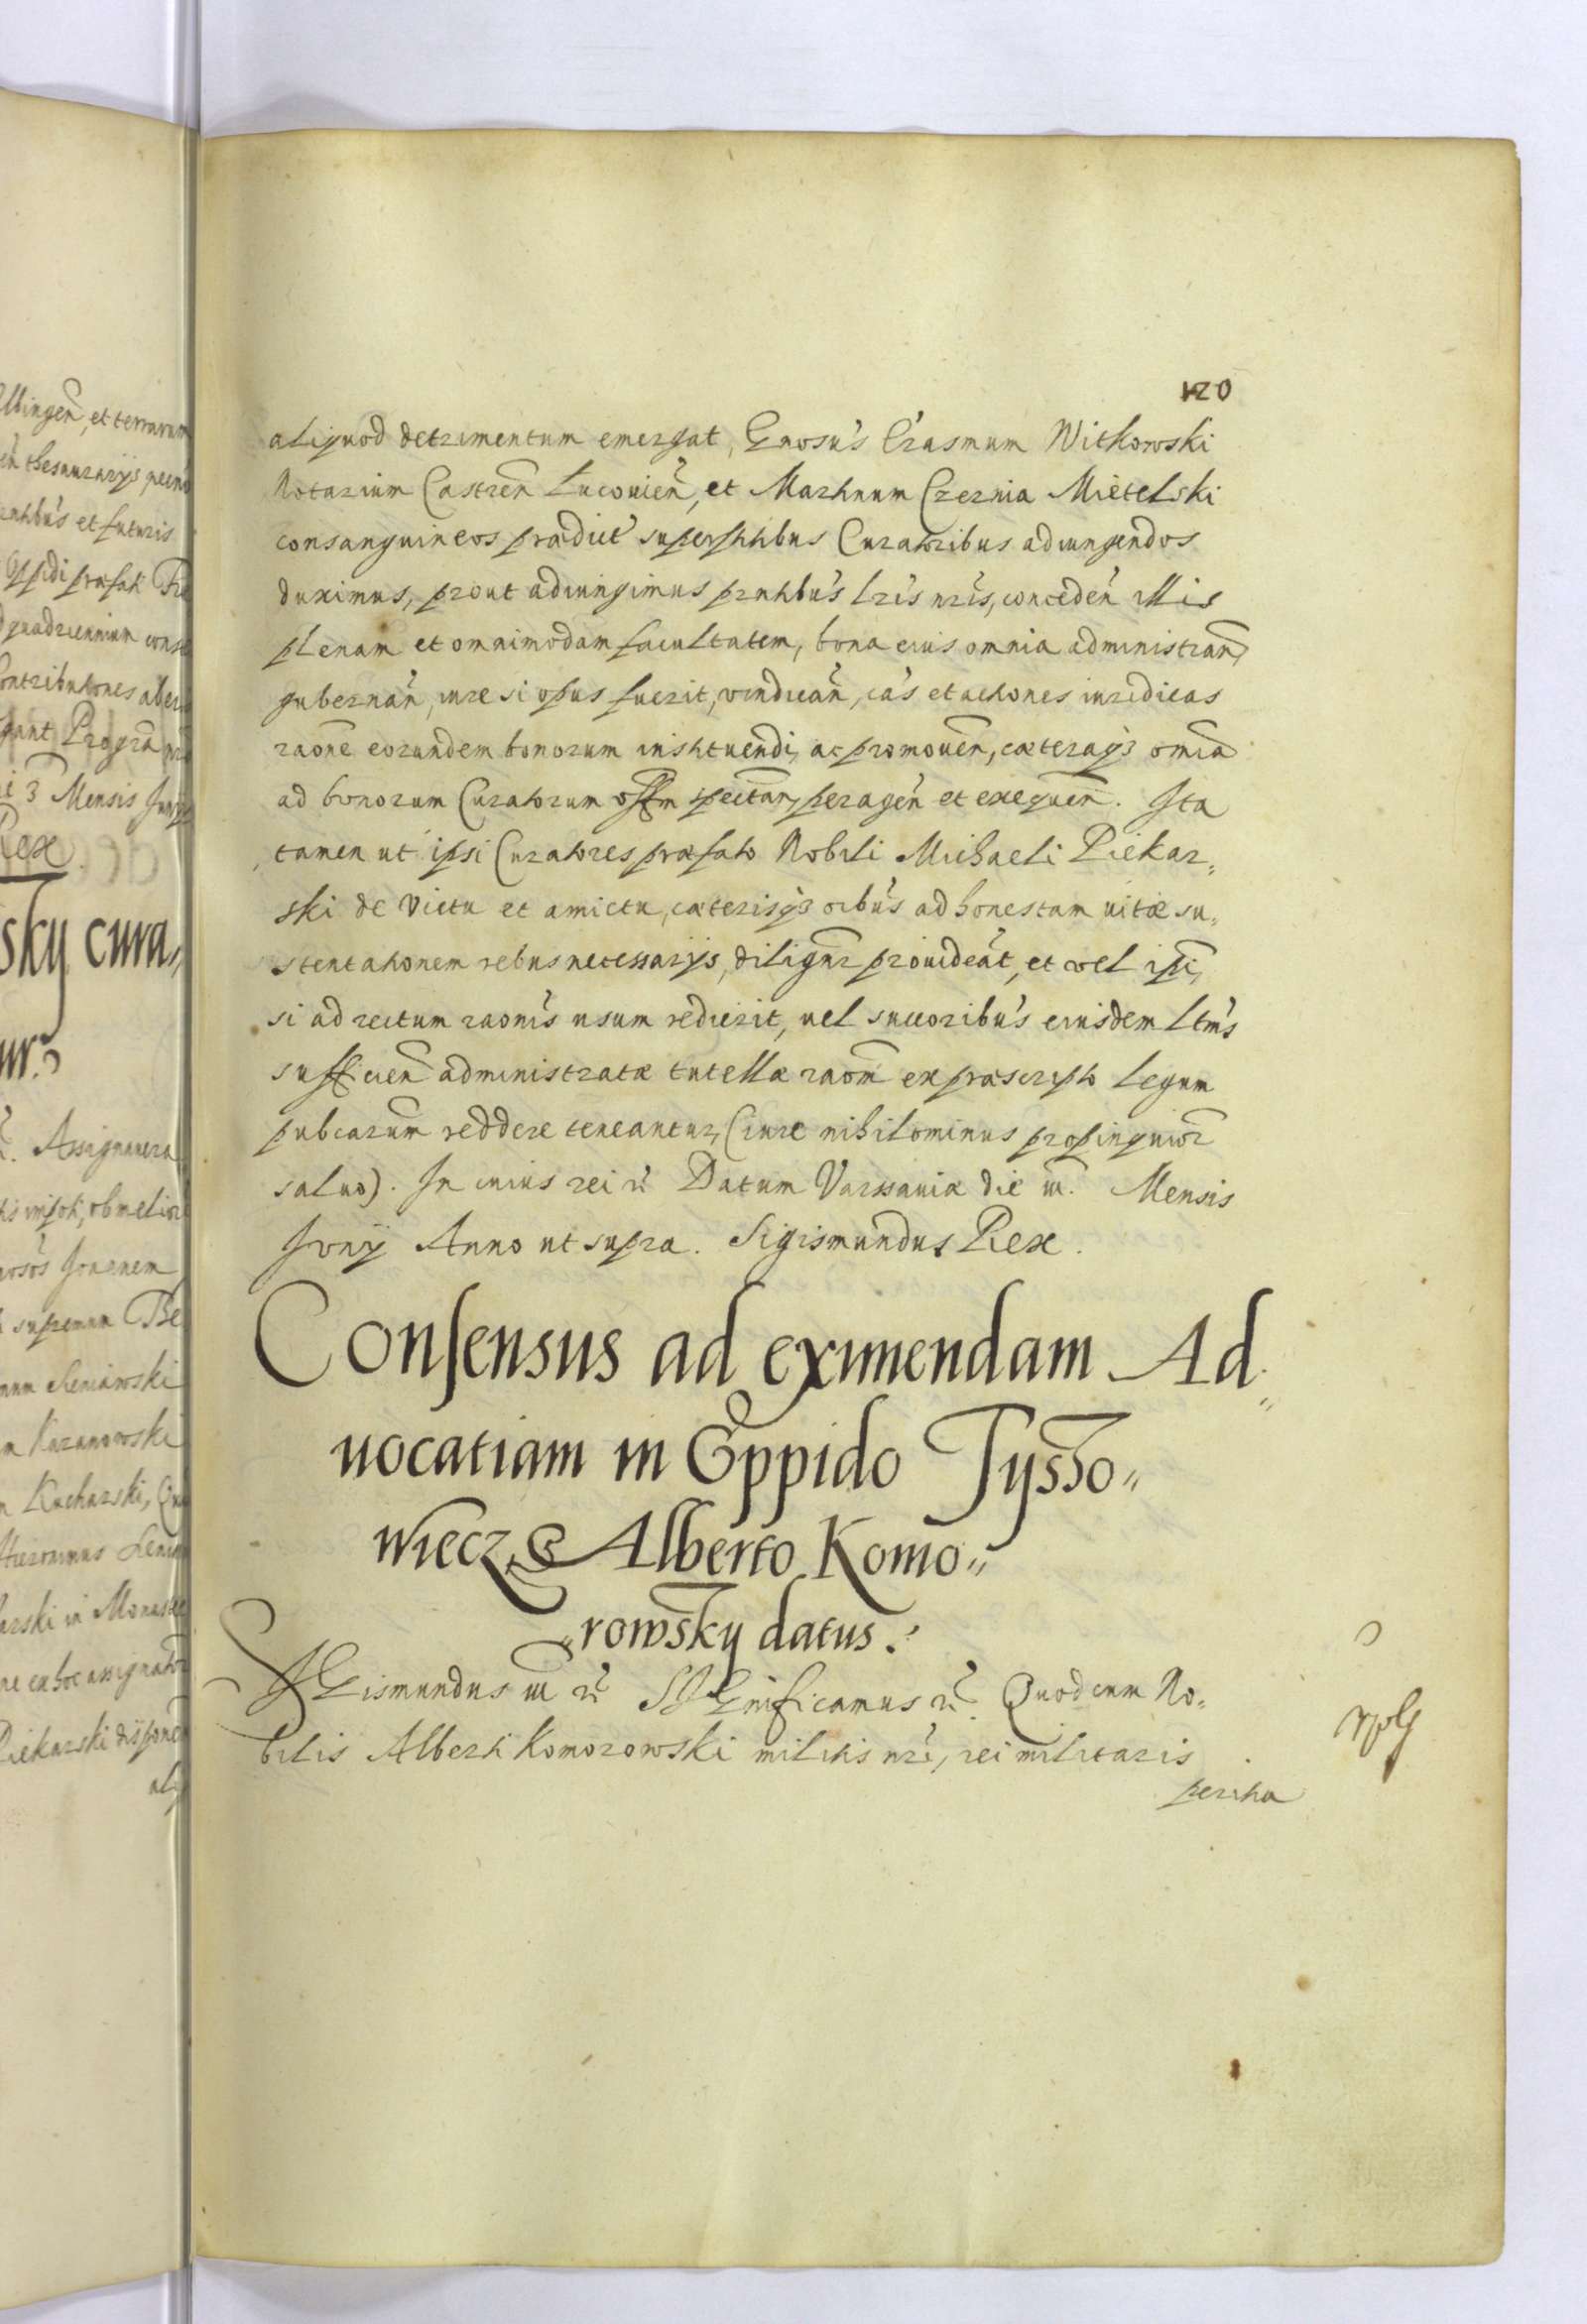 120
aliquod detrimentum emergat, Gnosu's Erasmum Witkowski
Notarium Castren̄ Lucouien̄, et Martinum Czernia Mietelski
consanguineos prædict' superstitibus Curatoribus adiungendos
duximus, prout adiungimus pñtibus lr̄is nr̄is, conceden̄ illis
plenam et omnimodam facultatem, bona eius omnia administran̄,
gubernan̄, iure si opus fuerit, vindican̄, cās et actiones iuridicas
raōne eorundem bonorum instituendi, ac promouen̄, cæteraq3 om̄ia
ad bonorum Curatorum off̄m spectan̄, peragen̄ et exequen̄. Ita
tamen ut ipsi Curatores præfato Nobili Michaeli Piekar„
ski de victu et amictu, cæterisq3 oībus ad honestam uitæ su„
stentationem rebus necessarijs, dilign̄r prouideāt, et vel ipsi,
si ad rectum raōnis usum redierit, uel succoribus eiusdem ltm̄s
sufficien̄ administratæ tutellæ raōm ex præscripto legum
pubcarum reddere teneantur, (iure nihilominus propinquior̄
saluo). In cuius rei r̄. Datum Varssauiæ die III. Mensis
Junij Anno ut supra. Sigismundus Rex.
Consensus ad eximendam Ad„
uocatiam in Oppido Tysso„
wiecz Alberto Komo„
„rowsky datus.
SIGismundus III r̄. SIGnificamus r̄. Quod cum No„
bilis Alberti Komorowski militis nr̄i, rei militaris
peritia
Elbingen̄, et terrarum
thesaurarijs
et futuris
præfati
quadriennium
Contributiones
3 Mensis
Rex
sky cura„
Assignauera
Jonanem
supremum
Sieniawski
Kazanowski
Kucharski,
assignator
Piekarski
ali